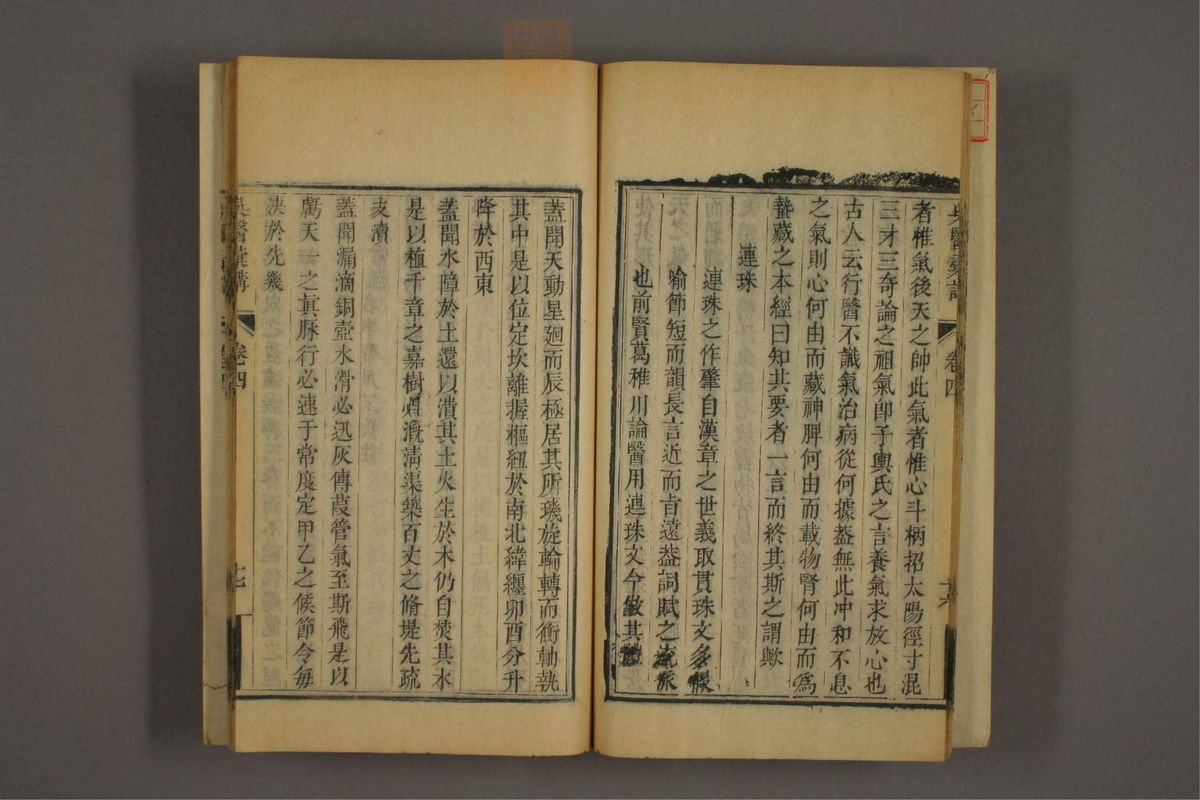 吳醫彙講
卷四
者惟氣後天之帥此氣者惟心斗柄招太陽徑寸混
三才三奇論之祖氣卽子輿氏之言養氣求放心也
古人云行醫不識氣治病從何據蓋無此冲和不息
之氣則心何由而藏神脾何由而載物腎何由而爲
蟄藏之本經曰知其要者一言而終其斯之謂歟
連珠
連珠之作肇自漢章之世義取貫珠文多假
喻節短而韻長言近而旨遠蓋詞賦之流派
也前賢葛稚川論醫用連珠文今倣其體
蓋聞天動星廻而辰極居其所璣旋輪轉而衡軸執
其中是以位定坎離握樞紐於南北緯纏卯酉分升
降於西東
蓋聞水障於土還以潰其土火生於木仍自焚其木
是以植千章之嘉樹灌漑淸渠築百丈之脩堤先疏
支瀆
蓋聞漏滴銅壺水滑必迅灰傳葭管氣至斯飛是以
厲天一之眞脈行必速于常度定甲乙之候節令每
決於先幾
吳醫彙講
卷四